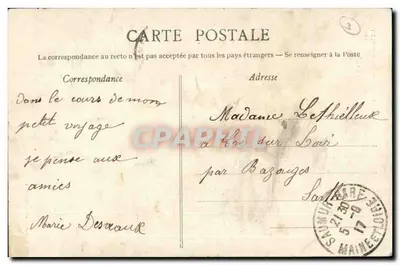 CARTE POSTALE
La correspondance au recto n'est pas acceptée par tous les pays étrangers — Se renseigner à la Poste
Correspondance
Adresse
dans le cours de mon
petit voyage
je pense aux
amies
Marie Desvaux
Madame Lethielleux
sur Loir
par Bazouges
Sarthe
SAUMUR GARE
21 30
5 - 9
17
MAINE ET LOIRE
2